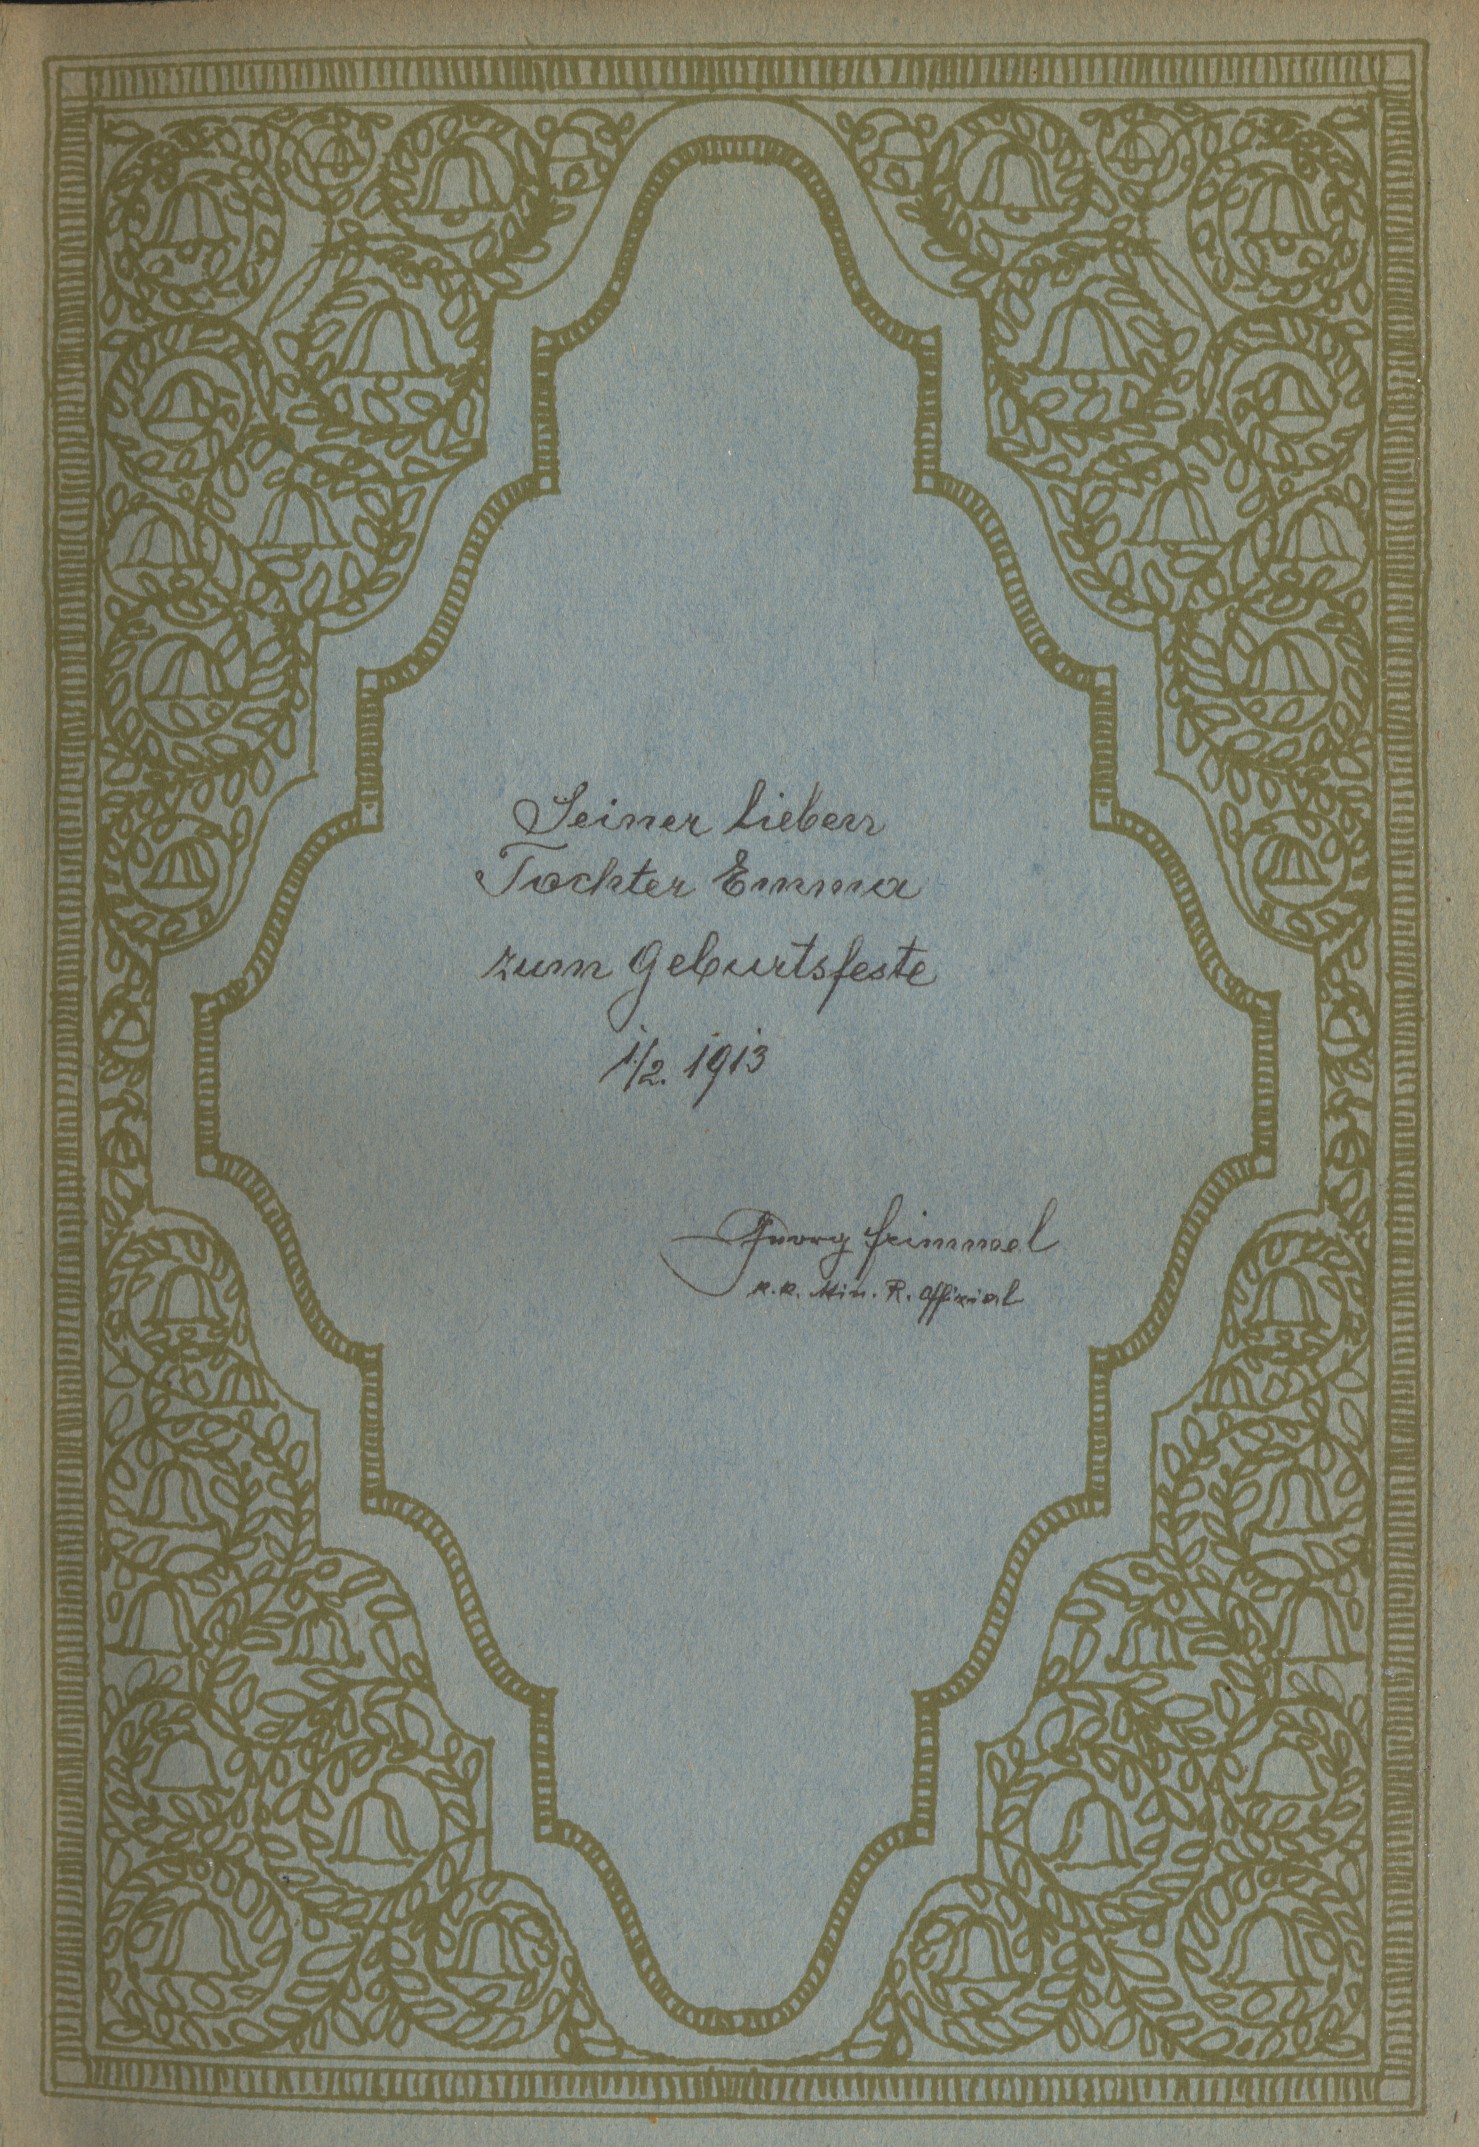 Seiner lieben
Tochter Emma
zum Geburtsfeste
1/2. 1913
Georg Frimmel
K. K. Min. R. Offizial